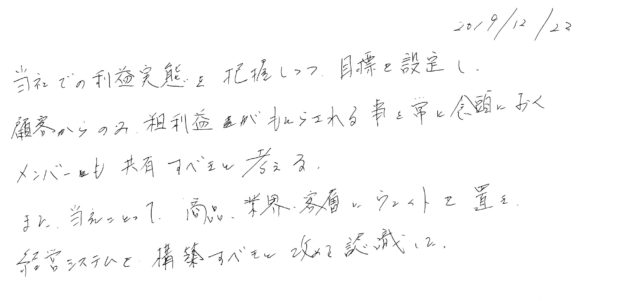 2019/12/23
当社での利益実態を把握しつつ、目標を設定し、
顧客からのみ粗利益がもたらされる事を常に念頭におく
メンバーにも共有すべきと考える。
また、当社にとって、商品、業界、客層にウェイトを置き、
経営システムを構築すべきと改めて認識した。